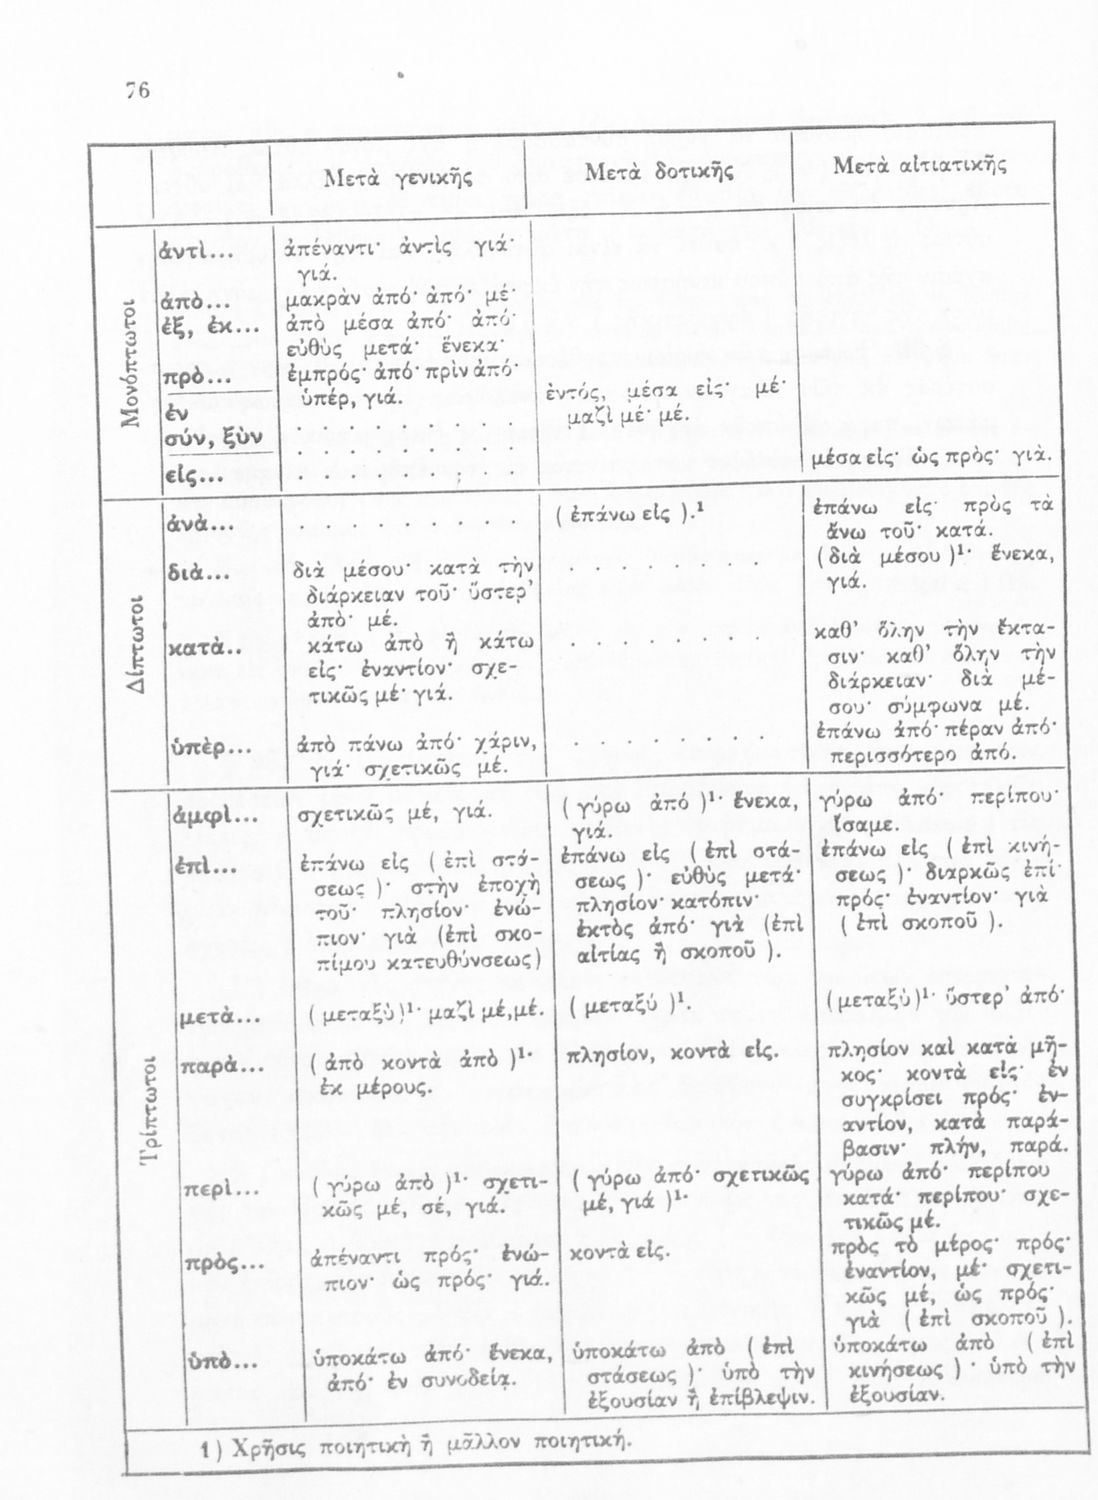 76
Μετὰ γενικῆς Μετὰ δοτικῆς Μετὰ αἰτιατικῆς
Μονόπτωτοι
ἀντὶ... ἀπέναντι· ἀντὶς γιά·
γιά.
ἀπὸ... μακρὰν ἀπό· ἀπό· μέ·
ἐξ, ἐκ... ἀπὸ μέσα ἀπό· ἀπό·
εὐθὺς μετά· ἕνεκα·
πρὸ... ἐμπρός· ἀπό· πρὶν ἀπό·
ὑπέρ, γιά.
ἐν ἐντός, μέσα εἰς· μέ·
σύν, ξὺν . . . . . . . . . μαζὶ μέ· μέ.
εἰς... . . . . . . . . . μέσα εἰς· ὡς πρός· γιὰ.
Δίπτωτοι
ἀνὰ... . . . . . . . . . ( ἐπάνω εἰς ).¹ ἐπάνω εἰς· πρὸς τὰ
ἄνω τοῦ· κατά.
διὰ... διὰ μέσου· κατὰ τὴν . . . . . . . . ( διὰ μέσου )¹· ἕνεκα,
διάρκειαν τοῦ· ὕστερ' γιά.
ἀπὸ· μέ.
κατὰ.. κάτω ἀπὸ ἢ κάτω . . . . . . . . καθ' ὅλην τὴν ἔκτα-
εἰς· ἐναντίον· σχε- σιν· καθ' ὅλην τὴν
τικῶς μέ· γιά. διάρκειαν· διὰ μέ-
σου· σύμφωνα μέ.
ὑπὲρ... ἀπὸ πάνω ἀπό· χάριν, . . . . . . . . ἐπάνω ἀπό· πέραν ἀπό·
γιά· σχετικῶς μέ. περισσότερο ἀπό.
Τρίπτωτοι
ἀμφὶ... σχετικῶς μέ, γιά. ( γύρω ἀπό )¹· ἕνεκα, γύρω ἀπό· περίπου·
γιά. ἴσαμε.
ἐπὶ... ἐπάνω εἰς ( ἐπὶ στά- ἐπάνω εἰς ( ἐπὶ στά- ἐπάνω εἰς ( ἐπὶ κινή-
σεως )· στὴν ἐποχὴ σεως )· εὐθὺς μετά· σεως )· διαρκῶς ἐπί·
τοῦ· πλησίον· ἐνώ- πλησίον· κατόπιν· πρός· ἐναντίον· γιὰ
πιον· γιὰ (ἐπὶ σκο- ἐκτὸς ἀπό· γιὰ (ἐπὶ ( ἐπὶ σκοποῦ ).
πίμου κατευθύνσεως) αἰτίας ἢ σκοποῦ ).
μετὰ... ( μεταξὺ)¹· μαζὶ μέ,μέ. ( μεταξύ )¹. (μεταξὺ)¹· ὕστερ' ἀπό·
παρὰ... ( ἀπὸ κοντὰ ἀπὸ )¹· πλησίον, κοντὰ εἰς. πλησίον καὶ κατὰ μῆ-
ἐκ μέρους. κος· κοντὰ εἰς· ἐν
συγκρίσει πρός· ἐν-
αντίον, κατὰ παρά-
βασιν· πλήν, παρά.
περὶ... ( γύρω ἀπὸ )¹· σχετι- ( γύρω ἀπό· σχετικῶς γύρω ἀπό· περίπου
κῶς μέ, σέ, γιά. μέ, γιά )¹· κατά· περίπου· σχε-
τικῶς μέ.
πρὸς... ἀπέναντι πρός· ἐνώ- κοντὰ εἰς. πρὸς τὸ μέρος· πρός·
πιον· ὡς πρός· γιά. ἐναντίον, μέ· σχετι-
κῶς μέ, ὡς πρός·
γιὰ ( ἐπὶ σκοποῦ ).
ὑπὸ... ὑποκάτω ἀπό· ἕνεκα, ὑποκάτω ἀπὸ ( ἐπὶ ὑποκάτω ἀπὸ ( ἐπὶ
ἀπό· ἐν συνοδείᾳ. στάσεως )· ὑπὸ τὴν κινήσεως ) · ὑπὸ τὴν
ἐξουσίαν ἢ ἐπίβλεψιν. ἐξουσίαν.
1) Χρῆσις ποιητικὴ ἢ μᾶλλον ποιητική.